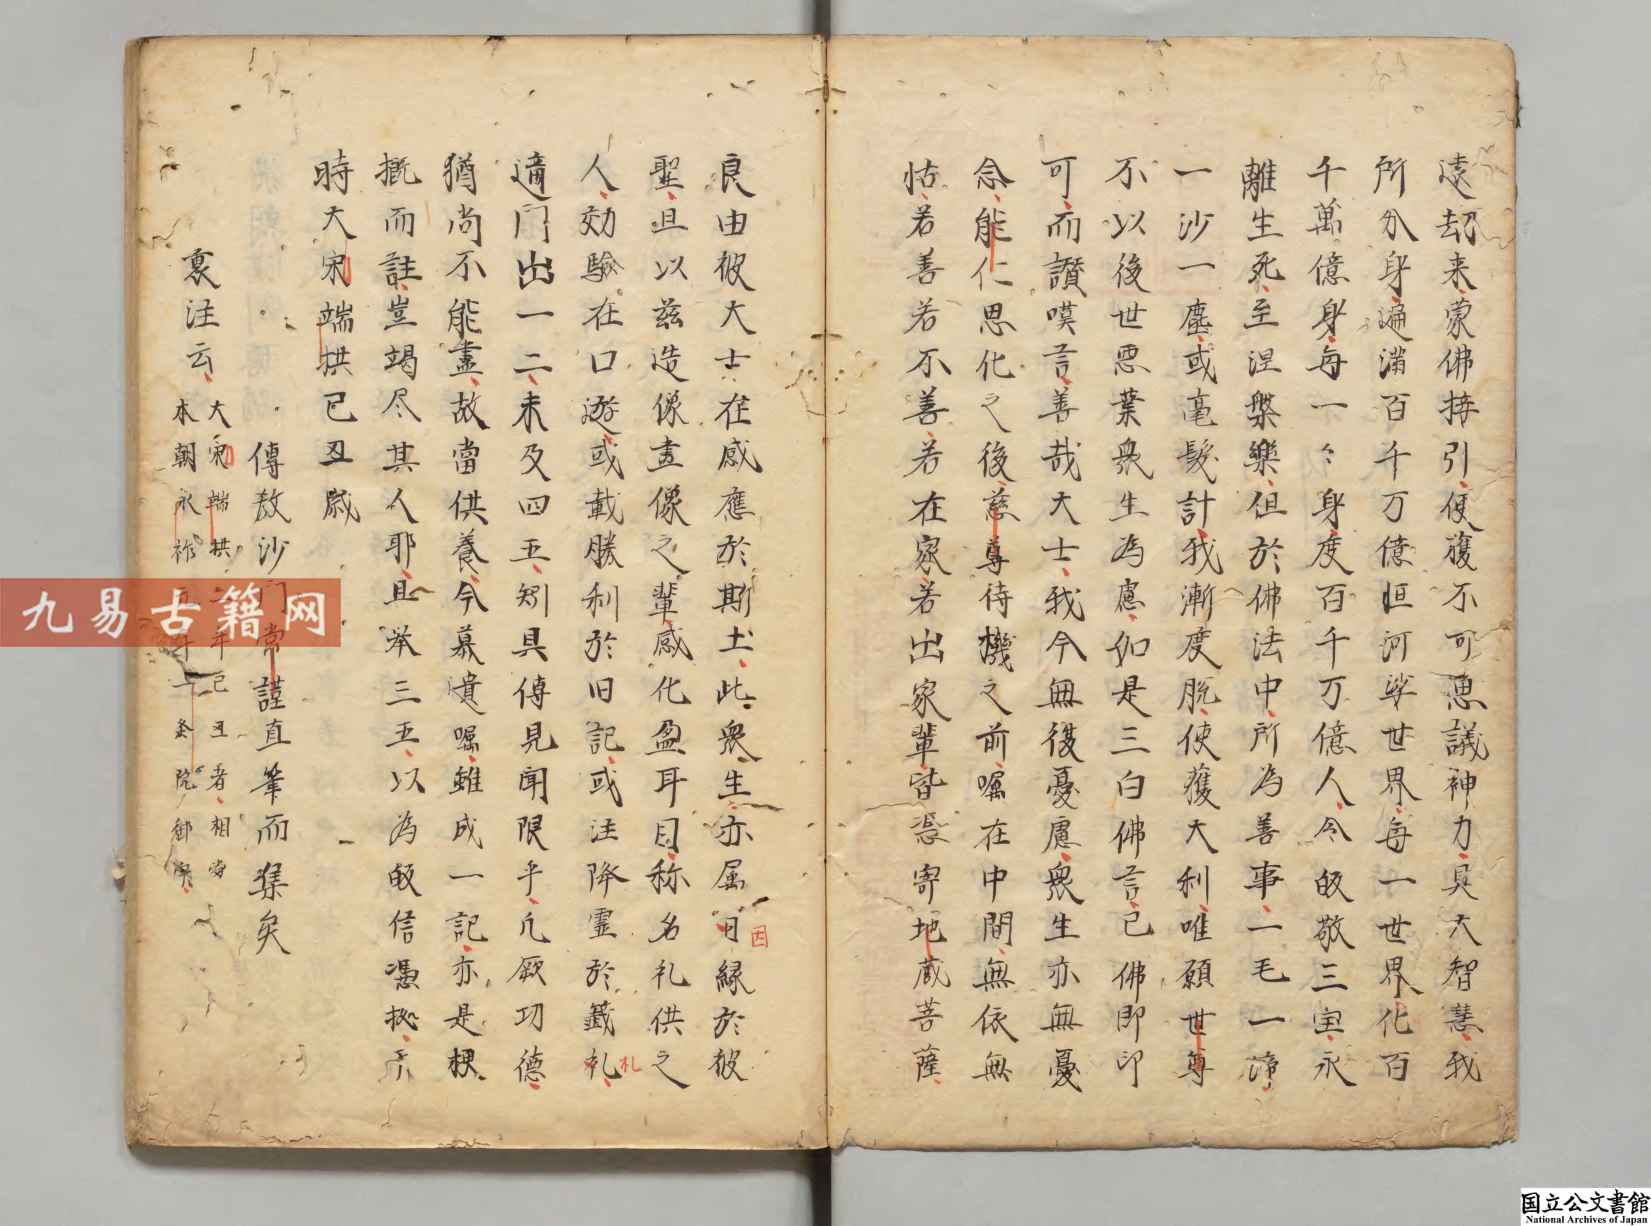 遠劫来蒙佛接引便獲不可思議神力具大智慧我
所分身遍滿百千万億恒河沙世界每一世界化百
千萬億身每一〻身度百千万億人令皈敬三宝永
離生死至涅槃樂但於佛法中所為善事一毛一渧
一沙一塵或毫髮計我漸度脱使獲大利唯願世尊
不以後世悪業衆生為慮如是三白佛言已佛即印
可而讃嘆言善哉大士我今無復憂慮衆生亦無憂
念能仁思化之後慈尊待機之前嘱在中間無依無
怙若善若不善若在家若出家輩皆憑寄地蔵菩薩
良由彼大士在感應於斯土此衆生亦属因縁於彼
聖且以茲造像畫像之輩感化盈耳目称名礼供之
人効驗在口遊或載勝利於旧記或注降霊於籤礼
札
適門出一二未及四五矧具傳見聞限乎凡厥功德
猶尚不能盡故當供養今慕遺嘱雖成一記亦是梗
概而註豈竭尽其人耶且挙三五以為皈信憑拠
時大宋端拱己丑歳
傳教沙門常謹直筆而集矣
裏注云
大宋端拱二年己丑者相當
本朝永祚元年一条院御宇
九易古籍网
国立公文書館
National Archives of Japan